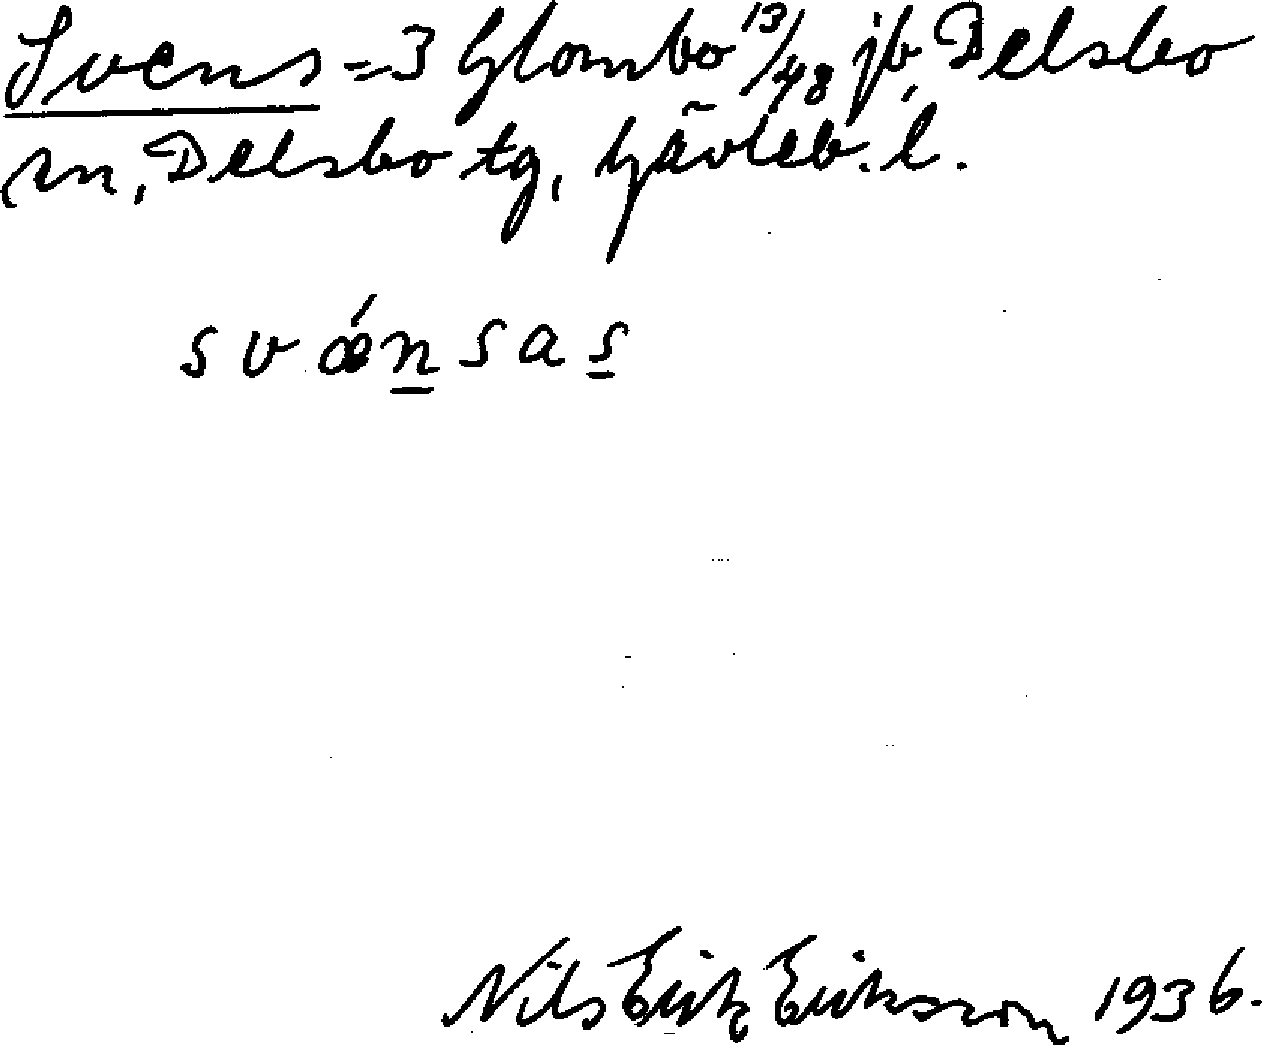 Svens = 3 Glombo 13/48 jb, Delsbo
sn, Delsbo tg, Gävleb. l.
svǽnsas
Nils Erik Eriksson 1936.